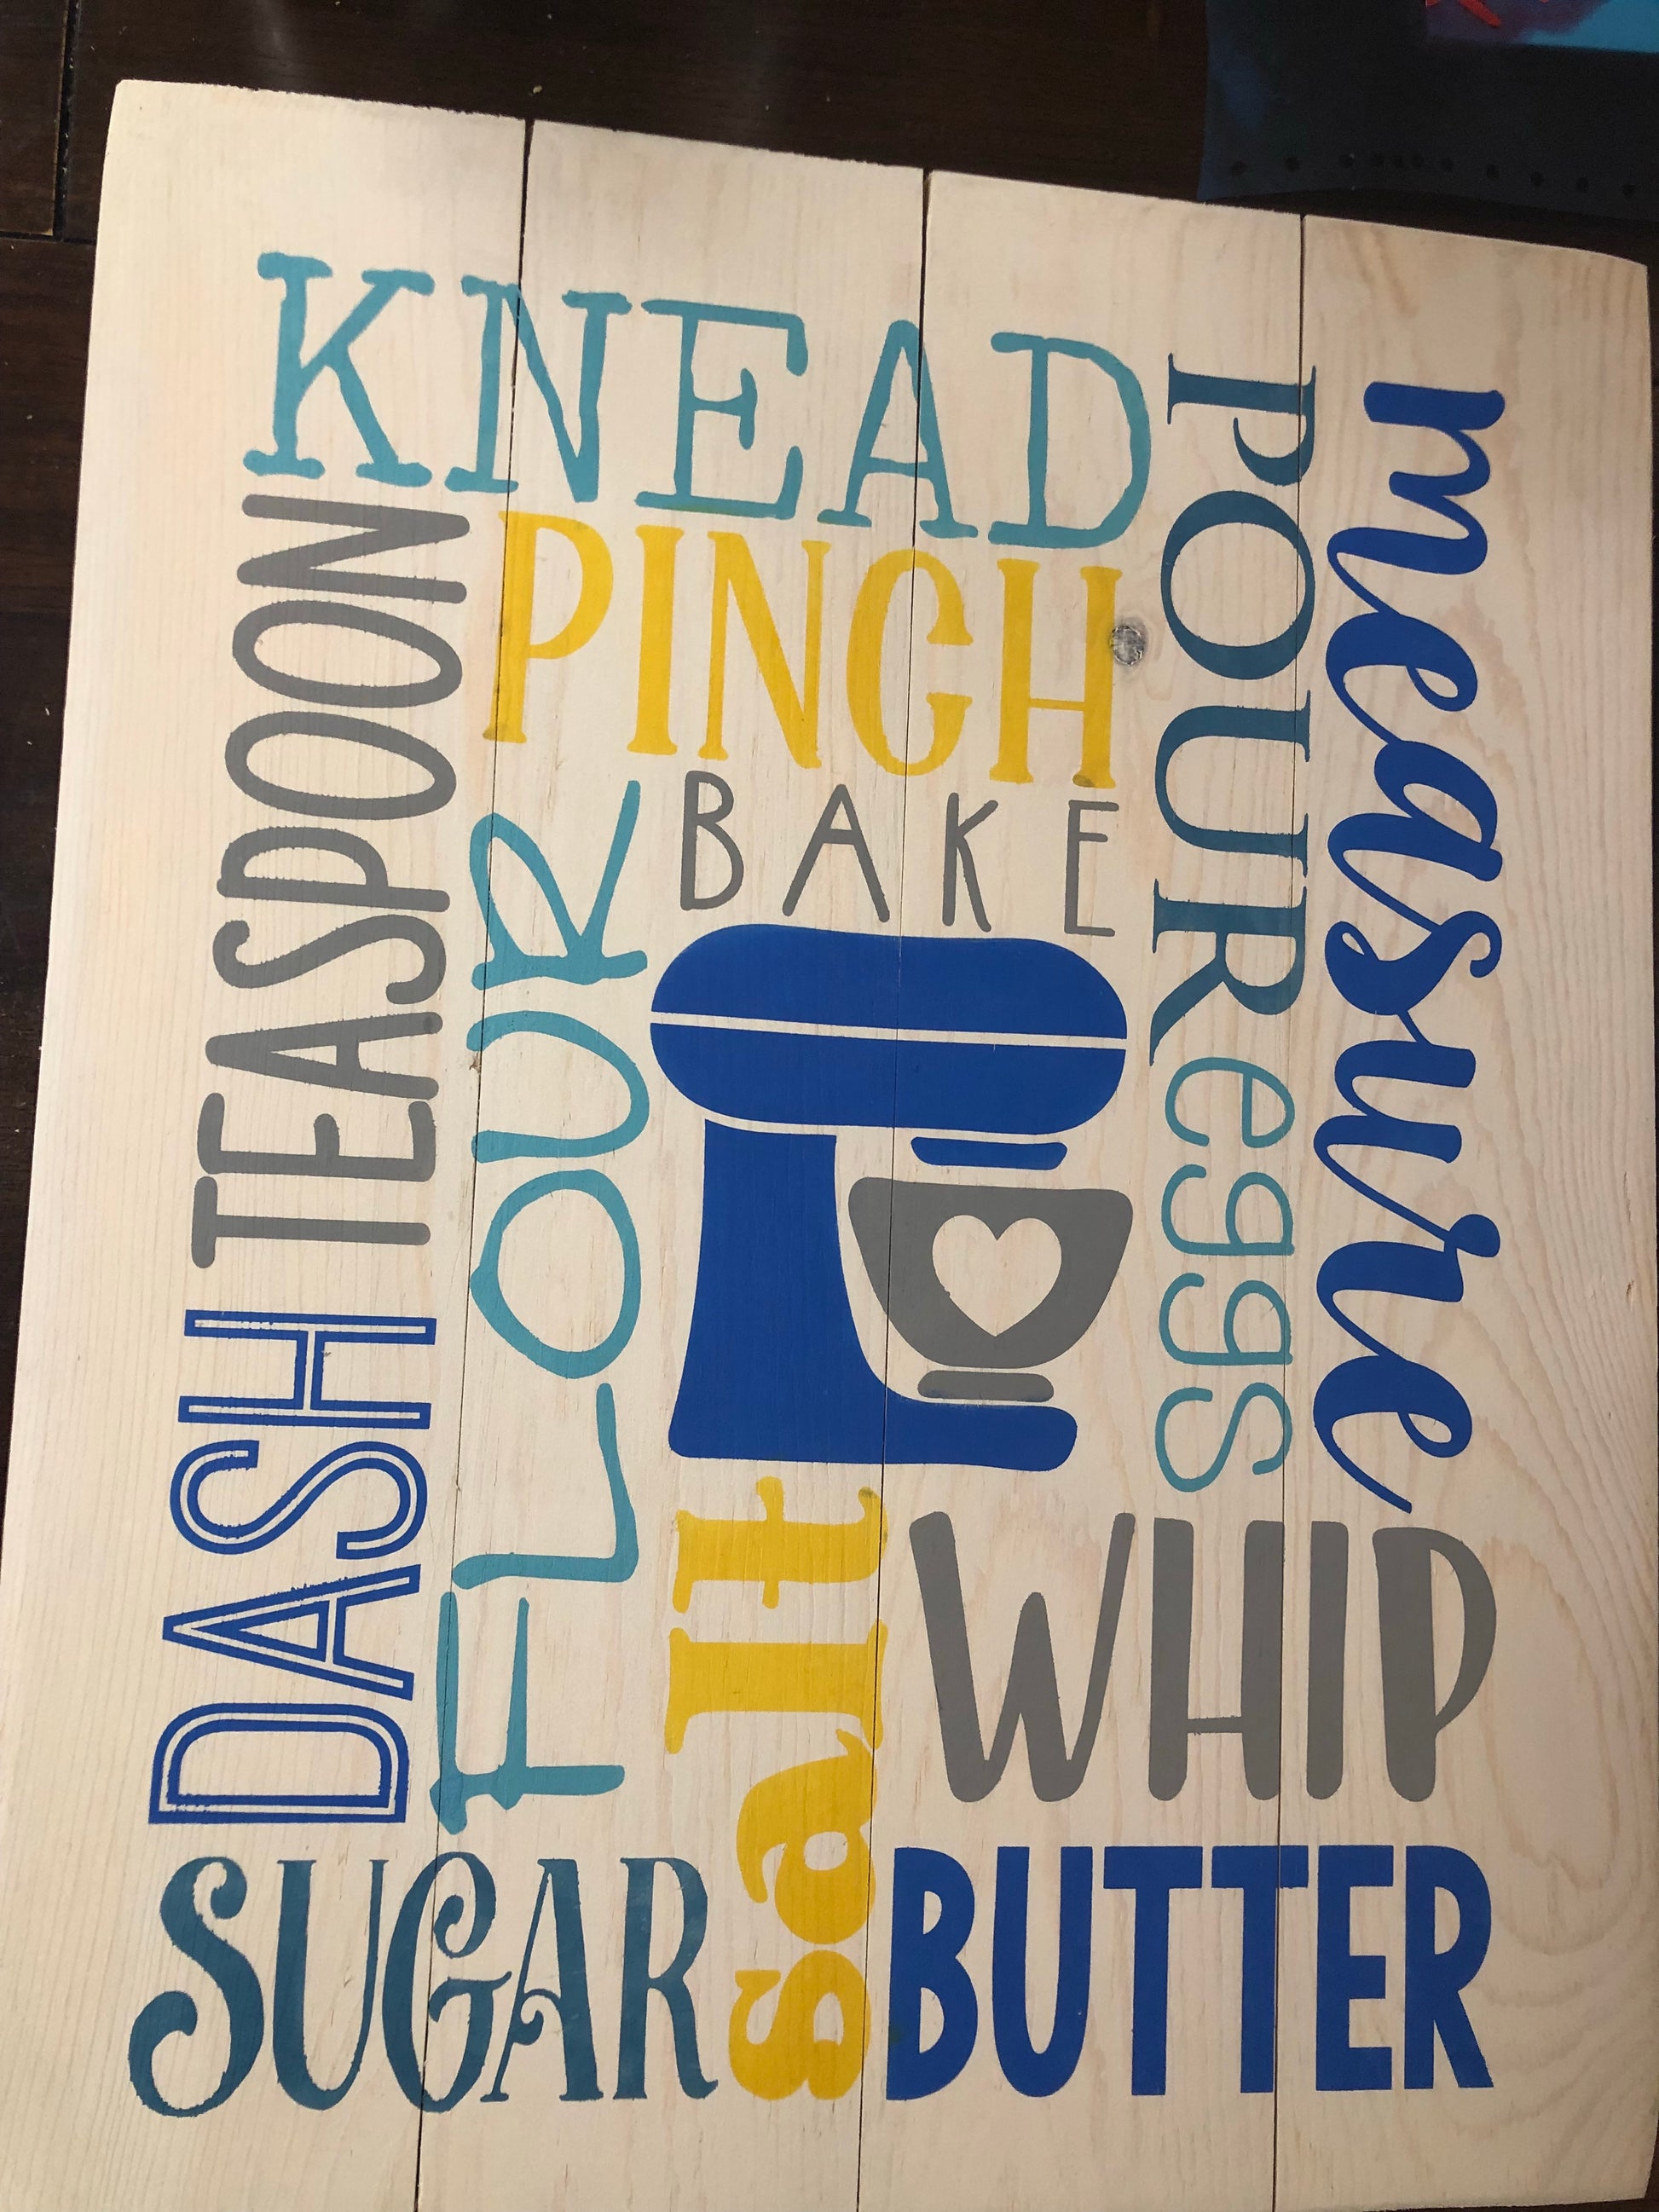 KNEAD
TEASPOON
PINCH
POUR
measure
BAKE
FLOUR
eggs
DASH
salt
WHIP
SUGAR
BUTTER